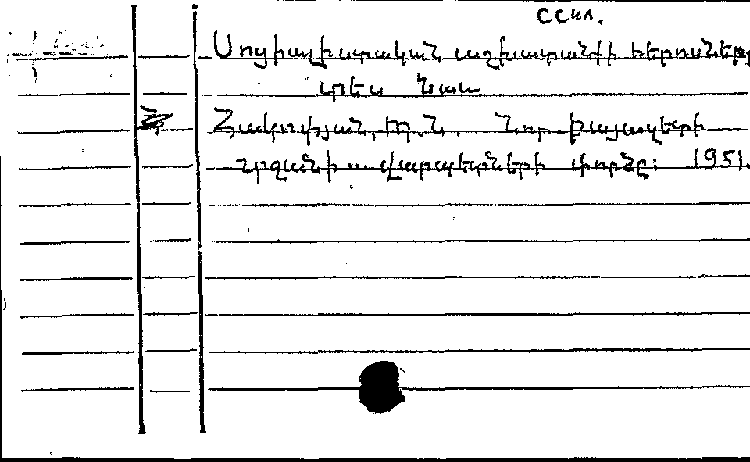 ССКЛ.
Սոցիալիստական աշխատանքի հերոսները
տես նաև
Հակոբյան, Խ. Ն. Նոր Բայազետի
շրջանի ... վարպետների փորձը: 1951.